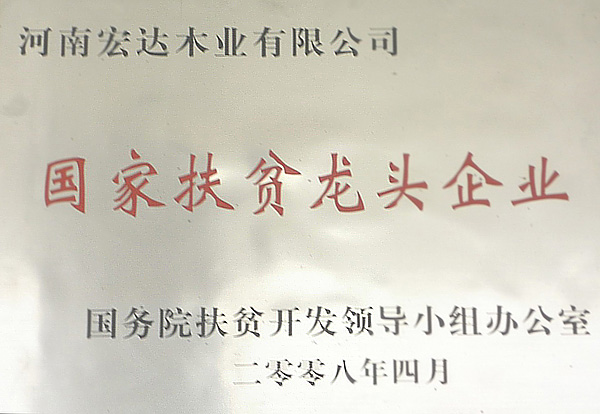 河南宏达木业有限公司
国家扶贫龙头企业
国务院扶贫开发领导小组办公室
二零零八年四月